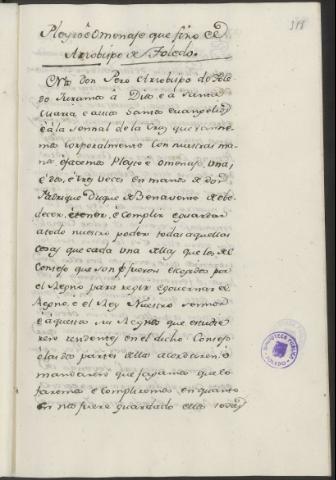 315
Pleyto é Omenaje que fiso el
Arzobispo de Toledo.
Nos don Pero Arzobispo de Tole
do Juramos á Dios é á Santa
Maria é á los Santos Evangelios
é á la Sennal de la Cruz que tanne
mos corporalmente con nuestras ma
nos é facemos Pleyto é Omenaje una
é dos, é tres veces en manos de don
Fadrique Duque de Benavente de obe
decer, é tener, é complir é guardar
á todo nuestro poder todas aquellas
cosas que cada una dellas que los del
Consejo que son é fueren escogidos por
el Regno para regir é governar el
Regno, é el Rey Nuestro Sennor
é aquestos sus Regnos que estudie
ren residentes en el dicho Consejo
é las dos partes dellos acordaren é
mandaren que fagamos que lo
faremos é compliremos en quanto
en nos fuere guardado ellos todas
BIBLIOTECA PUBLICA
TOLEDO